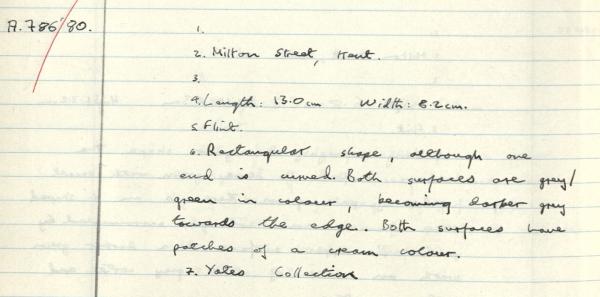 A.786'80.
1.
2. Milton Street, Kent.
3.
4. Length: 13.0cm Width: 8.2cm.
5. Flint.
6. Rectangular shape, although one
end is curved. Both surfaces are grey/
green in colour, becoming darker grey
towards the edge. Both surfaces have
patches of a cream colour.
7. Yates Collection